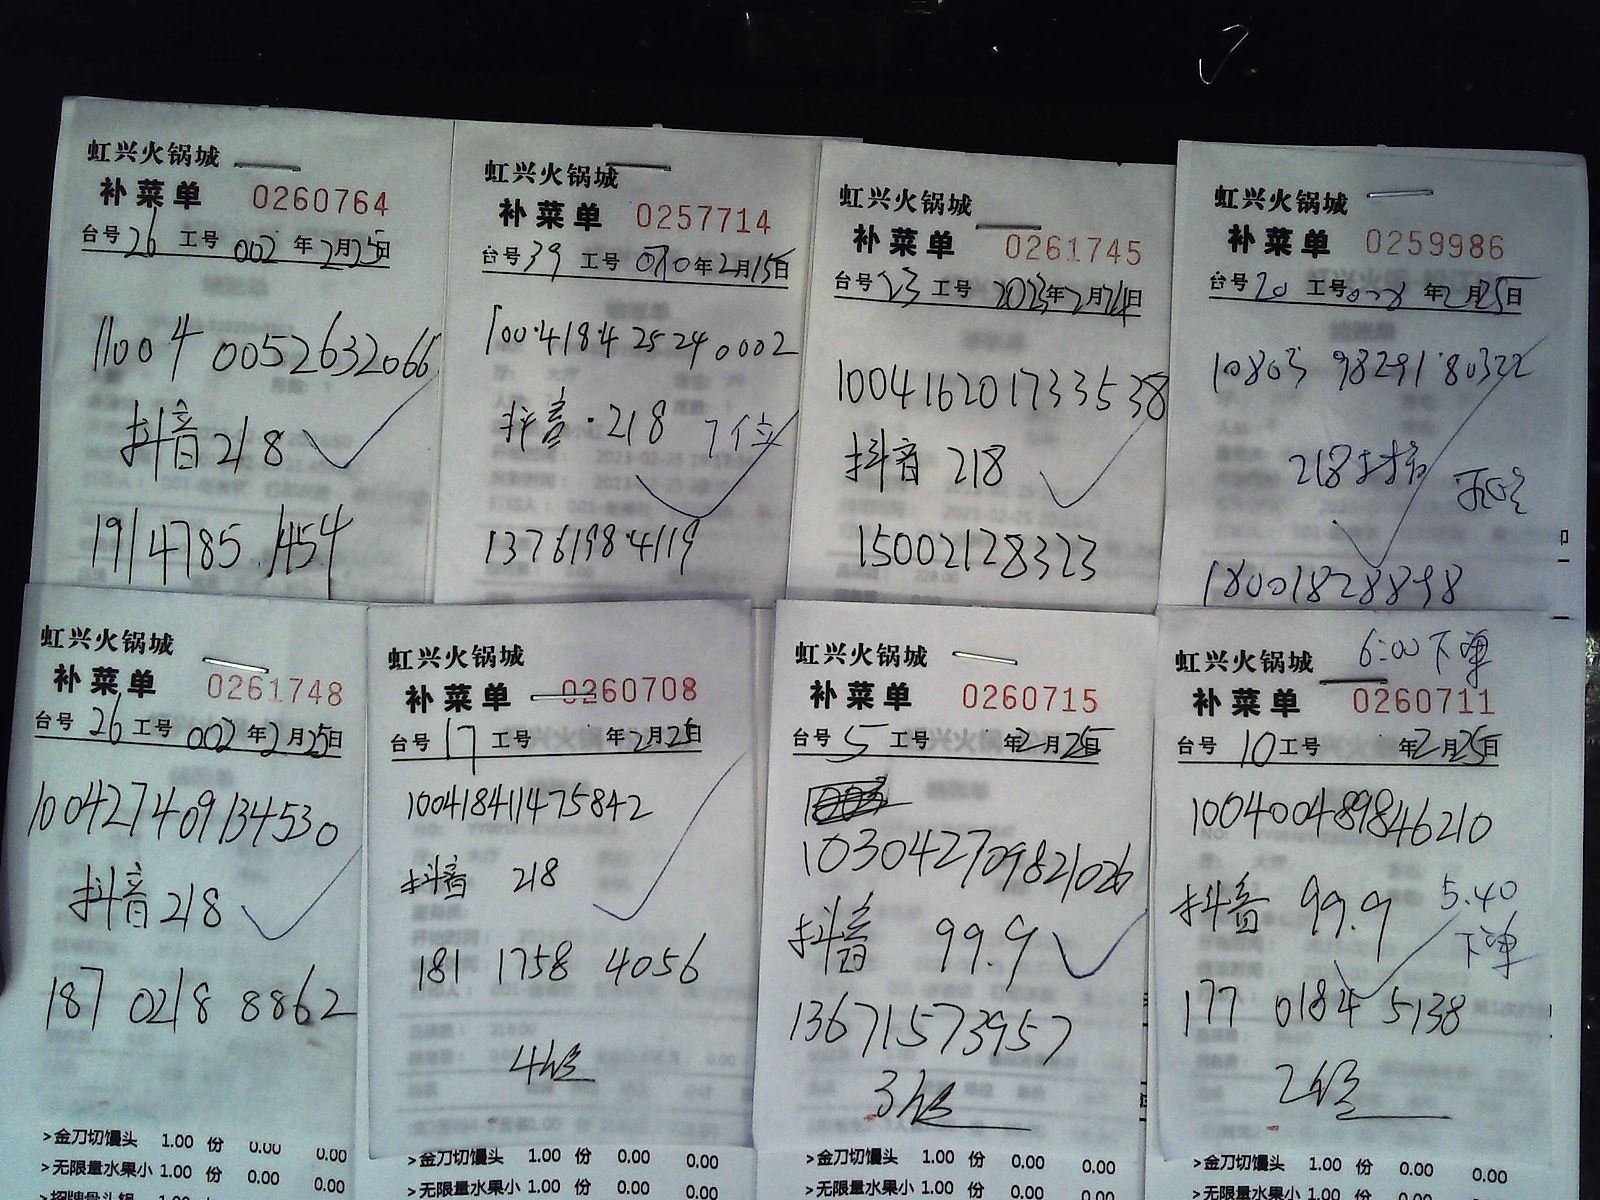 虹兴火锅城
补菜单 0260764
台号26 工号 002 年2月25日
11004 0052632066
抖音218
191 4785 1454
虹兴火锅城
补菜单 0257714
台号39 工号 010年2月15日
1004184 25240002
抖音·218 7位
13761984119
虹兴火锅城
补菜单 0261745
台号23 工号 2023年2月24日
100416201733538
抖音 218
15002128323
虹兴火锅城
补菜单 0259986
台号20 工号 年2月25日
10803 9829180322
218抖音
18001828898
虹兴火锅城
补菜单 0261748
台号26 工号 002年2月25日
100427409134530
抖音218
187 0218 8862
>金刀切馒头 1.00 份 0.00 0.00
>无限量水果小 1.00 份 0.00 0.00
>招牌骨头锅 1.00
虹兴火锅城
补菜单 0260708
台号 17 工号 年2月25日
100418411475842
抖音 218
181 1758 4056
4位
>金刀切馒头 1.00 份 0.00 0.00
>无限量水果小 1.00 份 0.00 0.00
虹兴火锅城
补菜单 0260715
台号 5 工号 年2月25日
103042709821026
抖音 99.9
13671573957
3位
>金刀切馒头 1.00 份 0.00 0.00
>无限量水果小 1.00 份 0.00 0.00
6:00下单
虹兴火锅城
补菜单 0260711
台号 10工号 年2月25日
100400489846210
抖音 99.9 5.40
下单
177 0184 5138
2位
>金刀切馒头 1.00 份 0.00 0.00
>无限量水果小 1.00 份 0.00 0.00